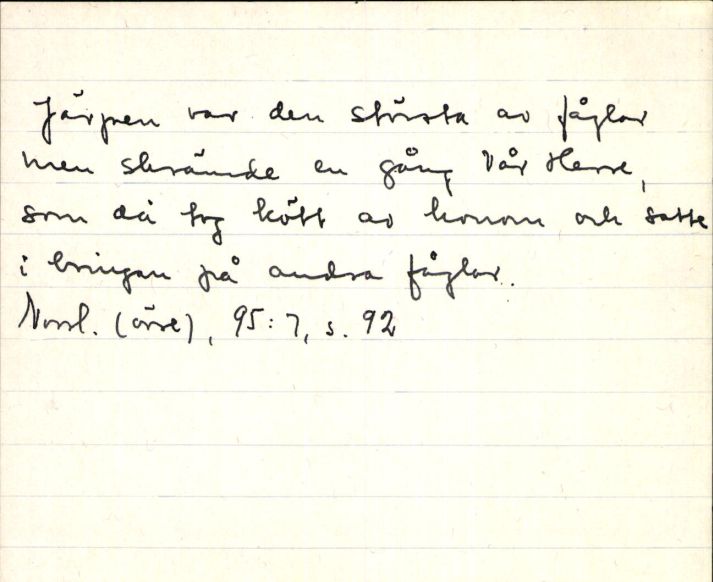 Järpen var den största av fåglar
men skrämde en gång Vår Herre,
som då tog kött av honom och satte
i bringan på andra fåglar.
Norrl. (övre), 95:7, s. 92